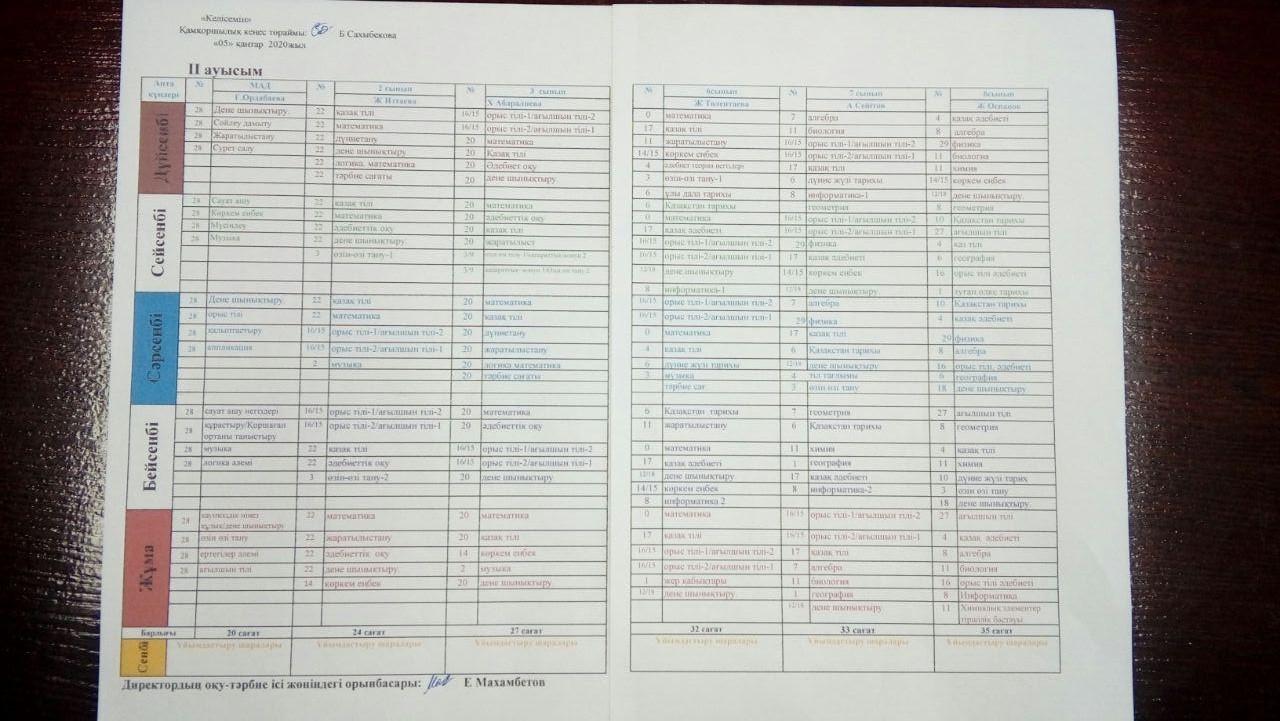 «Келісемін»
Қамқоршылық кеңес төрайымы: Б Сахыбекова
«05» қаңтар 2020жыл
II ауысым
Апта күндері № МАД № 2 сынып № 3 сынып № 6сынып № 7 сынып № 8сынып
Г.Ордабаева Ж Иттаева Х Абаралиева Ж Төлентаева А Сейтğан Ж Оспанов
Дүйсенбі
28 Дене шынықтыру. 22 қазақ тілі 16/15 орыс тілі-1/ағылшын тілі-2 0 математика 7 алгебра 4 қазақ әдебиеті
28 Сөйлеу дамыту 22 математика 16/15 орыс тілі-2/ағылшын тілі-1 17 қазақ тілі 11 биология 8 алгебра
28 Жаратылыстану 22 дүниетану 20 математика 11 жаратылыстану 16/15 орыс тілі-1/ағылшын тілі-2 29 физика
28 Сурет салу 22 дене шынықтыру. 20 Қазақ тілі 14/15 көркем еңбек 16/15 орыс тілі-2/ағылшын тілі-1 11 биология
22 логика. математика 20 Әдебиет оқу 4 әдебиет теория негіздері 17 қазақ тілі 11 химия
22 тәрбие сағаты 20 дене шынықтыру. 3 өзін-өзі тану-1 6 дүние жүзі тарихы 14/15 көркем еңбек
6 ұлы дала тарихы 8 информатика-1 12/18 дене шынықтыру.
Сейсенбі
28 Сауат ашу 22 қазақ тілі 20 математика 6 Қазақстан тарихы геометрия 8 геометрия
28 Көркем еңбек 22 математика 20 әдебиеттік оқу 0 математика 16/15 орыс тілі-1/ағылшын тілі-2 10 Қазақстан тарихы
28 Мүсіндеу 22 әдебиеттік оқу 20 қазақ тілі 17 қазақ әдебиеті 16/15 орыс тілі-2/ағылшын тілі-1 27 ағылшын тілі
28 Музыка 22 дене шынықтыру. 20 жаратылыст 16/15 орыс тілі-1/ағылшын тілі-2 29 физика 4 қаз тілі
3 өзін-өзін тану-1 3/9 16/15 орыс тілі-2/ағылшын тілі-1 17 қазақ әдебиеті 6 география
3/9 12/18 дене шынықтыру 14/15 көркем еңбек 16 орыс тілі әдебиеті
8 информатика-1 12/18 дене шынықтыру. 1 туған өлке тарихы
Сәрсенбі
28 Дене шынықтыру. 22 қазақ тілі 20 математика 16/15 орыс тілі-1/ағылшын тілі-2 7 алгебра 10 Қазақстан тарихы
28 орыс тілі 22 математика 20 қазақ тілі 16/15 орыс тілі-2/ағылшын тілі-1 29 физика 4 қазақ әдебиеті
28 қалыптастыру 16/15 орыс тілі-1/ағылшын тілі-2 20 дүниетану 0 математика 17 қазақ тілі 29 физика
28 аппликация 16/15 орыс тілі-2/ағылшын тілі-1 20 жаратылыстану 4 қазақ тілі 6 Қазақстан тарихы 8 алгебра
2 музыка 20 логика математика 6 дүние жүзі тарихы 12/18 дене шынықтыру 16 орыс тілі, әдебиеті
20 тәрбие сағаты 3 музыка 4 тіл тағлымы 6 география
тәрбие сағ 3 өзін өзі тану 18 дене шынықтыру
Бейсенбі
28 сауат ашу негіздері 16/15 орыс тілі-1/ағылшын тілі-2 20 математика 6 Қазақстан тарихы 7 геометрия 27 ағылшын тілі
28 құрастыру/Қоршаған ортаны таныстыру 16/15 орыс тілі-2/ағылшын тілі-1 20 әдебиеттік оқу 11 жаратылыстану 6 Қазақстан тарихы 8 геометрия
28 музыка 22 қазақ тілі 16/15 орыс тілі-1/ағылшын тілі-2 0 математика 11 химия 4 қазақ тілі
28 логика әлемі 22 әдебиеттік оқу 16/15 орыс тілі-2/ағылшын тілі-1 17 қазақ әдебиеті 1 география 11 химия
3 өзін-өзі тану-2 20 дене шынықтыру 12/18 дене шынықтыру 17 қазақ әдебиеті 10 дүние жүзі тарих
14/15 көркем еңбек 8 информатика-2 3 өзін өзі тану
8 информатика 2 18 дене шынықтыру.
Жұма
28 қауіпсіздік мінез құлық/дене шынықтыру 22 математика 20 математика 0 математика 16/15 орыс тілі-1/ағылшын тілі-2 27 ағылшын тілі
28 өзін өзі тану 22 жаратылыстану 20 қазақ тілі 17 қазақ тілі 16/15 орыс тілі-2/ағылшын тілі-1 4 қазақ әдебиеті
28 ертегілер әлемі 22 әдебиеттік оқу 14 көркем еңбек 16/15 орыс тілі-1/ағылшын тілі-2 17 қазақ тілі 8 алгебра
28 ағылшын тілі 22 дене шынықтыру. 2 музыка 16/15 орыс тілі-2/ағылшын тілі-1 7 алгебра 11 биология
14 көркем еңбек 20 дене шынықтыру. 1 жер қабықтары 11 биология 16 орыс тілі әдебиеті
12/18 дене шынықтыру 1 география 8 Информатика
12/18 дене шынықтыру 11 Химиялық элементер тіршілік бастауы
Барлығы 20 сағат 24 сағат 27 сағат 32 сағат 33 сағат 35 сағат
Сенбі Ұйымдастыру шаралары Ұйымдастыру шаралары Ұйымдастыру шаралары Ұйымдастыру шаралары Ұйымдастыру шаралары Ұйымдастыру шаралары
Директордың оқу-тәрбие ісі жөніндегі орынбасары: Е Махамбетов